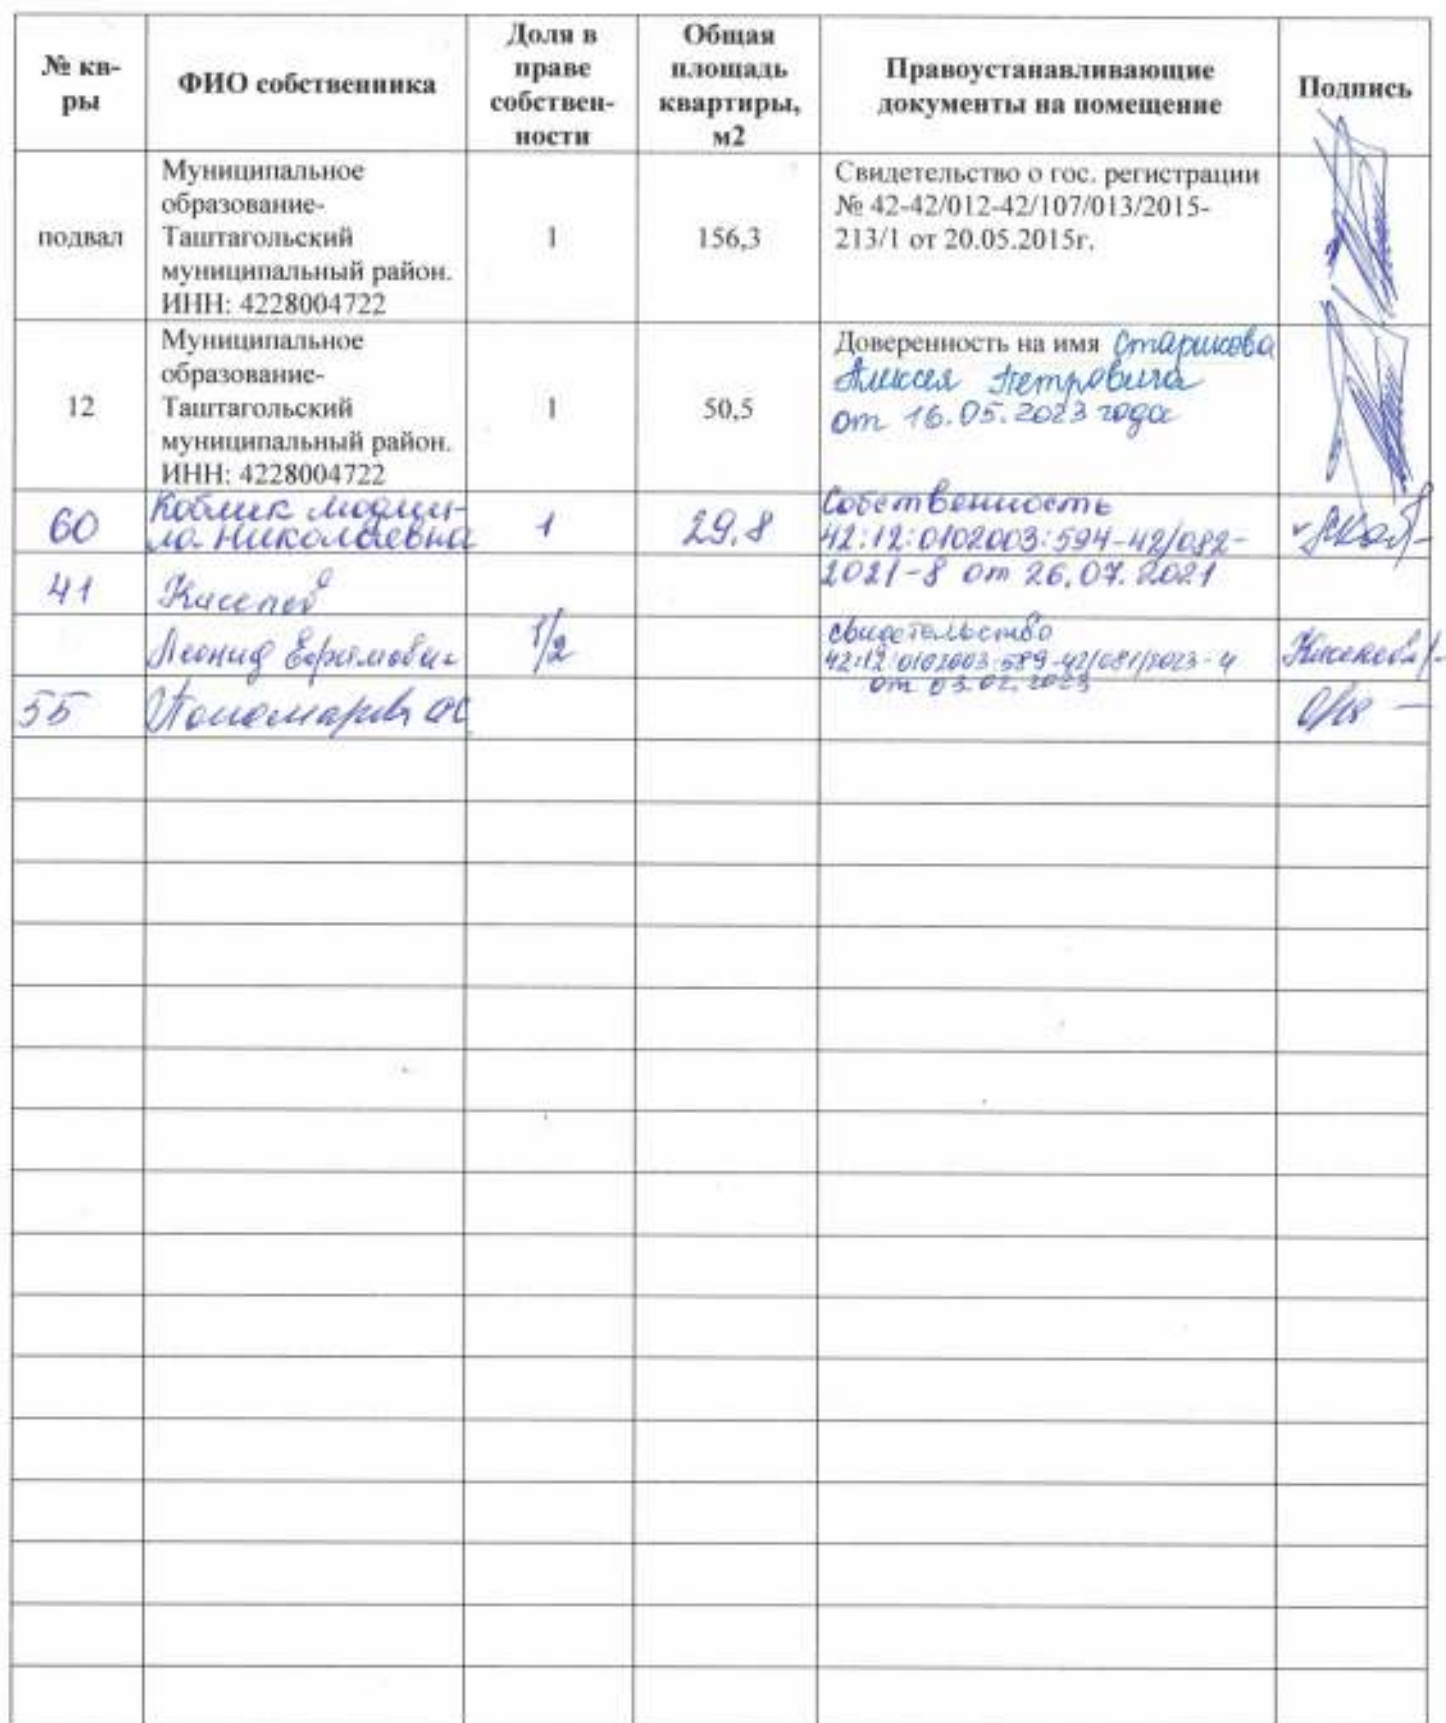 № кв-ры ФИО собственника Доля в праве собствен-ности Общая площадь квартиры, м2 Правоустанавливающие документы на помещение Подпись
подвал
Муниципальное
образование-
Таштагольский
муниципальный район.
ИНН: 4228004722
1
156,3
Свидетельство о гос. регистрации
№ 42-42/012-42/107/013/2015-
213/1 от 20.05.2015г.
12
Муниципальное
образование-
Таштагольский
муниципальный район.
ИНН: 4228004722
1
50,5
Доверенность на имя Старикова
Алексея Петровича
от 16.05.2023 года
60
Коблик Людми-
ла Николаевна
1
29.8
Собственность
42:12:0102003:594-42/082-
2021-8 от 26.07.2021
41
Леонид
1/2
свидетельство
42:12:0102003:589-42/081/2023-4
от 03.02.2023
55